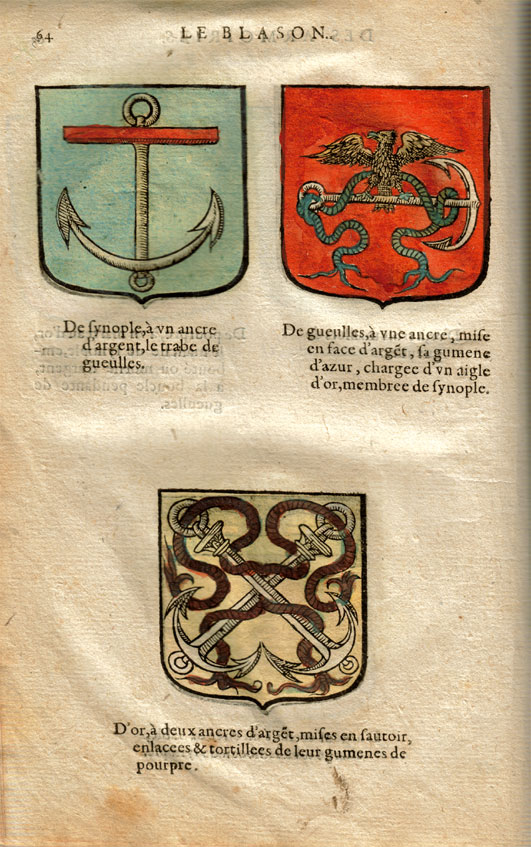 64
LE BLASON.
De ſynople, à vn ancre
d'argent, le trabe de
gueulles.
De gueulles, à vne ancre, miſe
en face d'argẽt, ſa gumene
d'azur, chargee d'vn aigle
d'or, membree de ſynople.
D'or, à deux ancres d'argẽt, miſes en ſautoir,
enlacees & tortillees de leur gumenes de
pourpre.